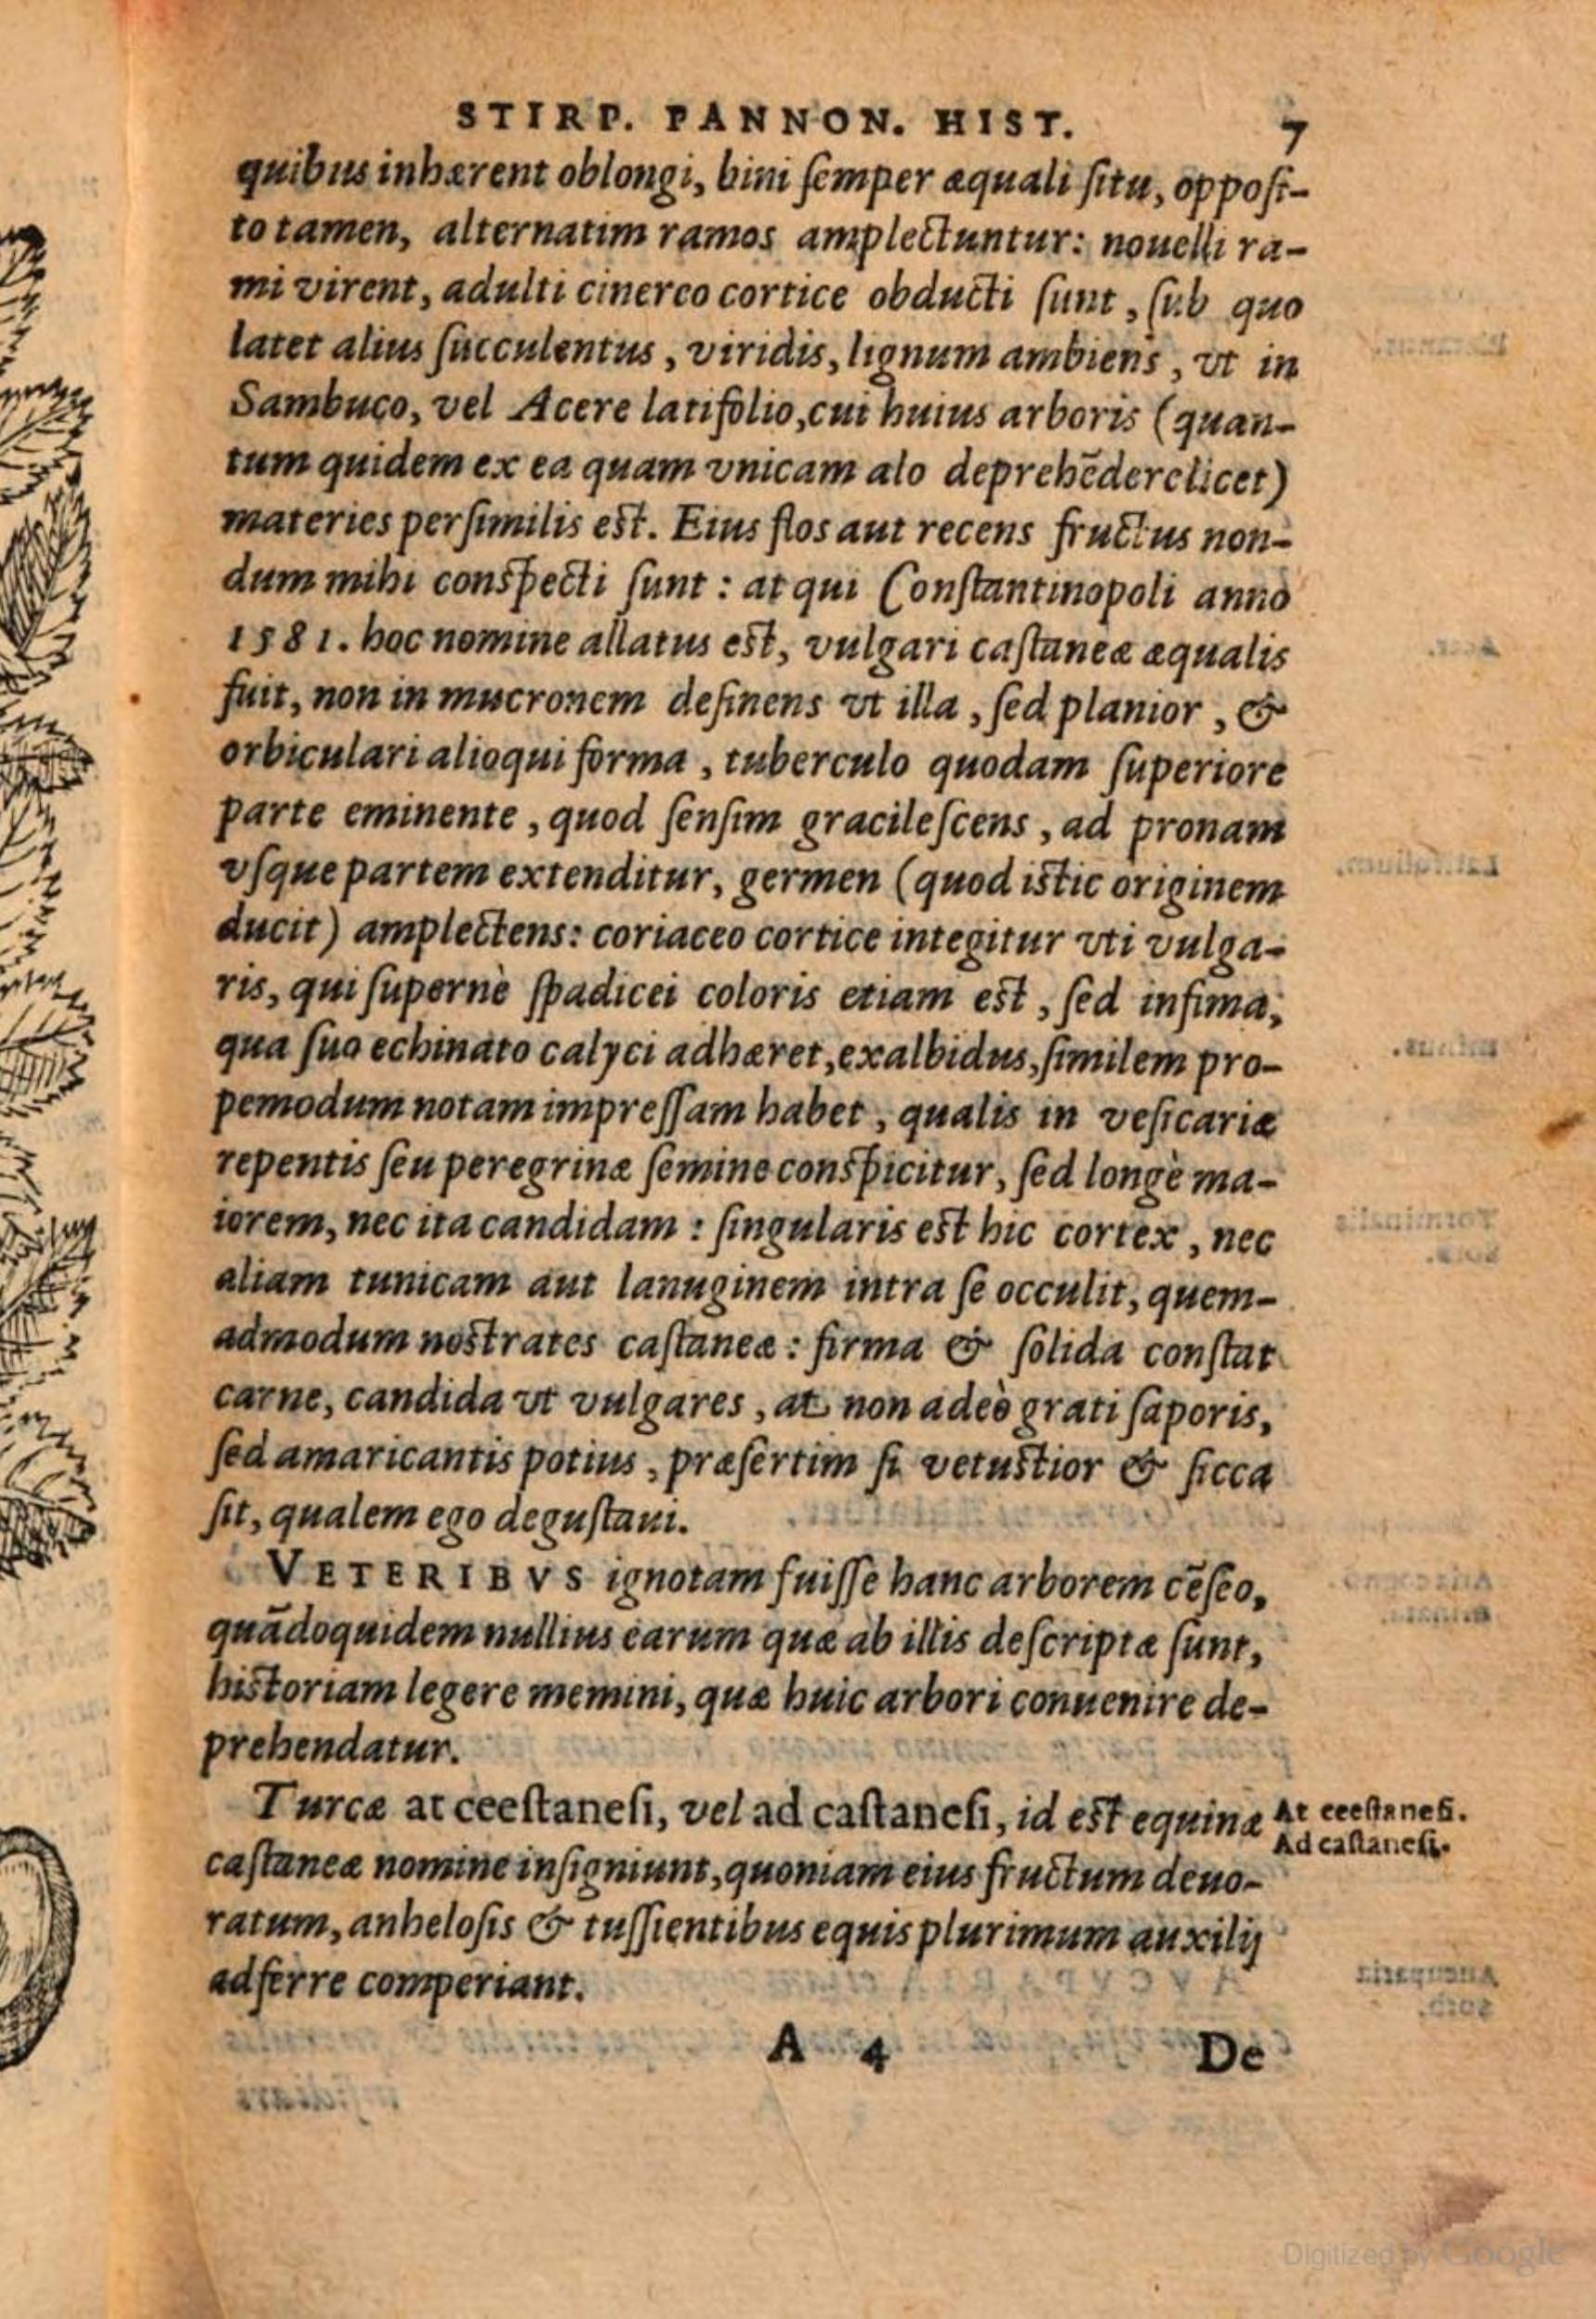 STIRP. PANNON. HIST. 7
quibus inhærent oblongi, bini ſemper æquali ſitu, oppoſi-
to tamen, alternatim ramos amplectuntur: nouelli ra-
mi virent, adulti cinereo cortice obducti ſunt, ſub quo
latet alius ſucculentus, viridis, lignum ambiens, vt in
Sambuco, vel Acere latifolio, cui huius arboris (quan-
tum quidem ex ea quam vnicam alo deprehēderelicet)
materies perſimilis est. Eius flos aut recens fructus non-
dum mihi conspecti ſunt: at qui Conſtantinopoli anno
1581. hoc nomine allatus est, vulgari caſtaneæ æqualis
fuit, non in mucronem deſinens vt illa, ſed planior, &
orbiculari alioqui forma, tuberculo quodam ſuperiore
parte eminente, quod ſenſim gracileſcens, ad pronam
vſque partem extenditur, germen (quod istic originem
ducit) amplectens: coriaceo cortice integitur vti vulga-
ris, qui ſupernè ſpadicei coloris etiam est, ſed infima,
qua ſuo echinato calyci adhæret, exalbidus, ſimilem pro-
pemodum notam impreſſam habet, qualis in veſicariæ
repentis ſeu peregrinæ ſemine conspicitur, ſed longè ma-
iorem, nec ita candidam: ſingularis est hic cortex, nec
aliam tunicam aut lanuginem intra ſe occulit, quem-
admodum nostrates caſtaneæ: firma & ſolida conſtat
carne, candida vt vulgares, at non adeò grati ſaporis,
ſed amaricantis potius, præſertim ſi vetustior & ſicca
ſit, qualem ego deguſtaui.
VETERIBVS ignotam fuiſſe hanc arborem cēſeo,
quādoquidem nullius earum quæ ab illis deſcriptæ ſunt,
historiam legere memini, quæ huic arbori conuenire de-
prehendatur.
Turcæ at ceeſtaneſi, vel ad caſtaneſi, id est equinæ
At ceeſtaneſi.
Ad caſtaneſi.
caſtaneæ nomine inſigniunt, quoniam eius fructum deuo-
ratum, anheloſis & tuſſientibus equis plurimum auxilij
adferre comperiant.
A 4 De
Digitized by Google